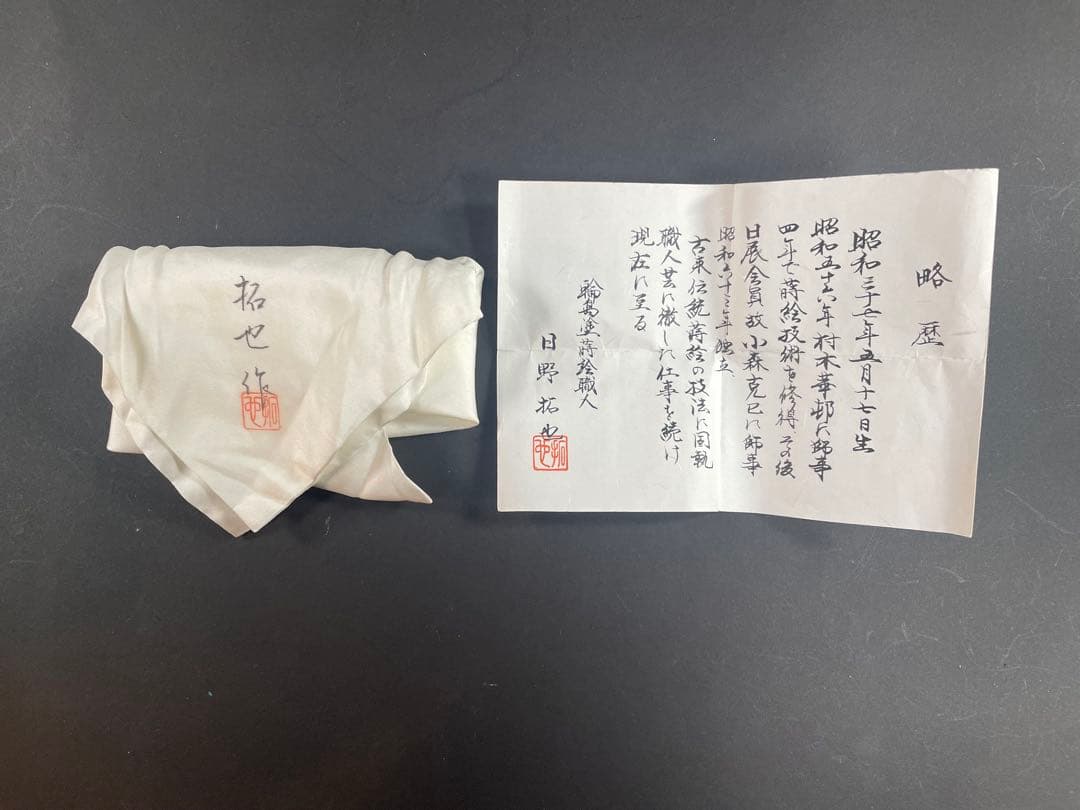 略歴
昭和三十七年五月十七日生
昭和五十六年村木華邨に師事
四年で蒔絵技術を修得、その後
日展会員故小森克己に師事
昭和六十三年独立、
古来伝統蒔絵の技法に固執
職人芸に徹した仕事を続け
現在に至る
輪島塗蒔絵職人
日野拓也
拓也
拓也作
拓也